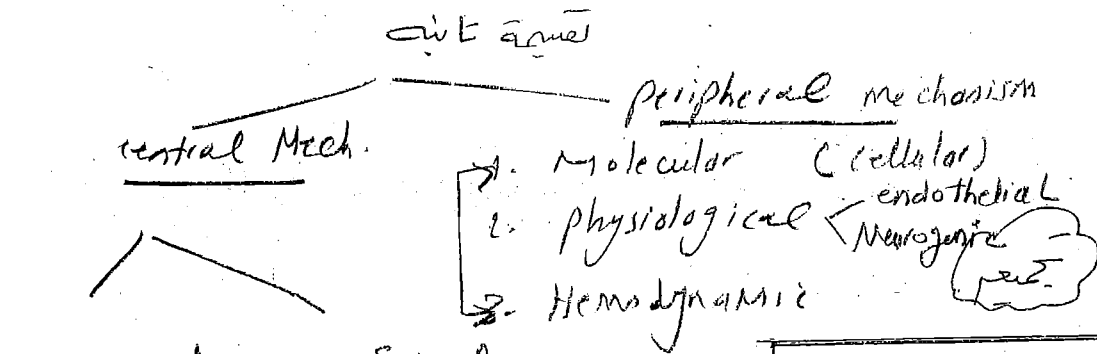 تقسيمة تانيه
Peripheral mechanism
central Mech.
1. Molecular (cellular)
2. physiological < endothelial
Neurogenic
3. Hemodynamic